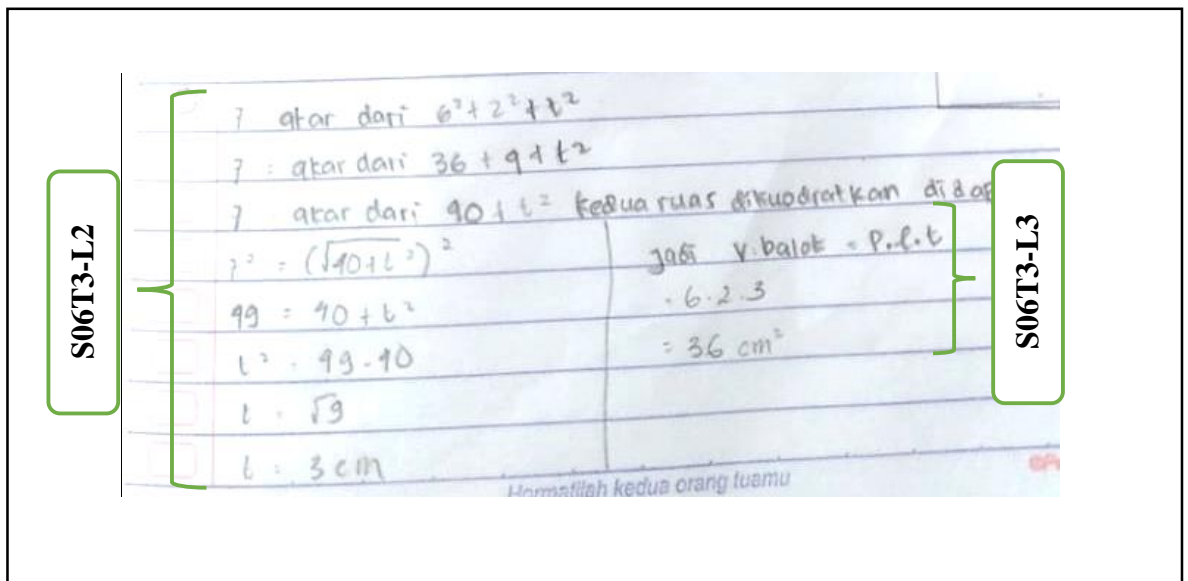 S06T3-L2
7 akar dari 6² + 2² + t²
7 = akar dari 36 + 4 + t²
7 akar dari 40 + t² kedua ruas dikuadratkan
7² = (√40+t²)²
49 = 40 + t²
t² = 49 - 40
t = √9
t = 3 cm
Jadi V. balok = P.l.t
= 6.2.3
= 36 cm²
Hormatilah kedua orang tuamu
S06T3-L3